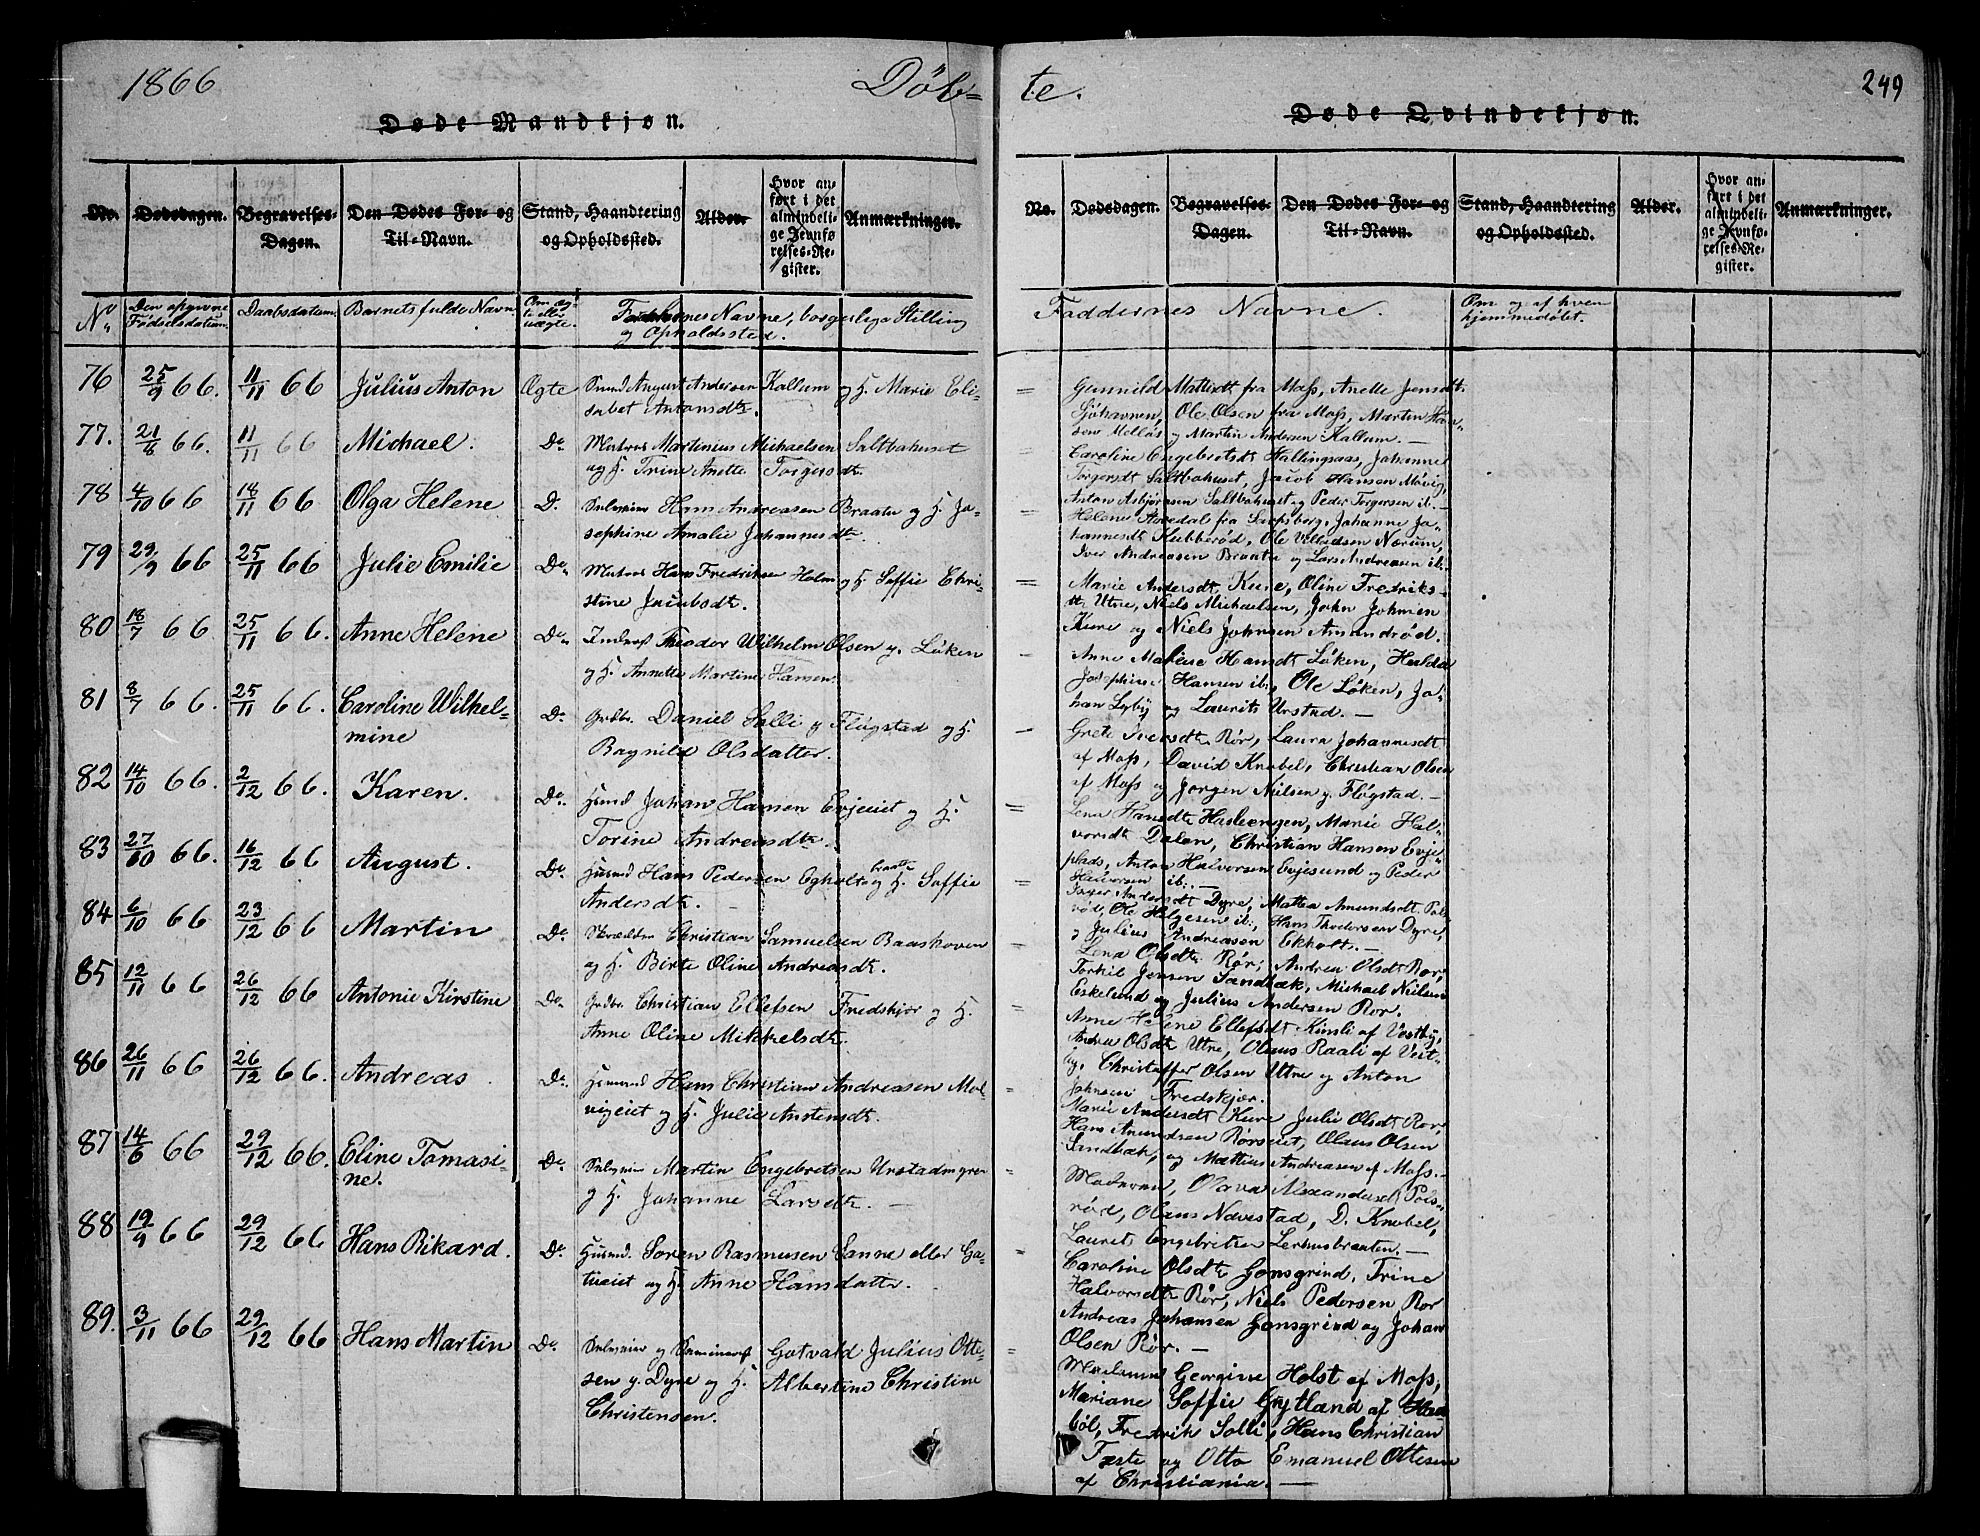 1866
Døb=
te.
249
Døde Mandkjøn.
Døde Qvindekjøn.
No.
Dødsdagen.
Begravelses-
Dagen.
Den Dødes For- og
Til-Navn.
Stand, Haandtering
og Opholdssted.
Alder.
Hvor an-
ført i det
almindeli-
ge Jevnfø-
relses-Re-
gister.
Anmærkninger.
No.
Dødsdagen.
Begravelses-
Dagen.
Den Dødes For- og
Til-Navn.
Stand, Haandtering
og Opholdssted.
Alder.
Hvor an-
ført i det
almindeli-
ge Jevnfø-
relses-Re-
gister.
Anmærkninger.
No
Den opgivne
Fødselsdatum.
Daabsdatum.
Barnets fulde Navn
Om æg-
te eller
uægte.
Navne, borgerlige Stilling
og Opholdssted.
Faddernes Navne.
Om og af hvem
hjemmedøbt.
76 25/9 66. 11/11 66 Julius Anton Ægte August Andersen Kallum og H. Marie Eli-
sabet Antonsdtr.
77. 21/8 66. 11/11 66 Michael. Do Matros Martinius Michaelsen Saltbohuset
og H. Trine Anette Torgersdtr
78 4/10 66 18/11 66 Olga Helene D. Selveier Hans Andreasen Braate og H. Jo-
sephine Amalie Johannesdtr.
79 29/9 66 25/11 66 Julie Emilie Do Matros Hans Fredriksen Holm og H. Soffie Chri-
stine Jacobsdt.
80 18/7 66 25/11 66. Anne Helene Do Theodor Wilhelm Olsen y. Løken
og H. Annette Martine Hansen.
81 8/7 66. 25/11 66. Caroline Wilhel-
mine Do Grdbr. Daniel Solli y Fløgstad og H.
Ragnild Olsdatter.
82 14/10 66. 2/12 66. Karen. Do Husmd Johan Hansen Evjeeiet og H.
Torine Andreasdtr.
83 27/10 66. 16/12 66 August. Do Husmd Hans Pedersen Egholt og H. Soffie
Andersdt.
84 6/10 66 23/12 66 Martin Do Skrædder Christian Samuelsen Baaskoven
og H. Birte Oline Andreasdt.
85 12/11 66 26/12 66 Antonie Kirstine Do Grdbr. Christian Ellefsen Fredskjør og H.
Anne Oline Mikkelsdt.
86 26/11 66 26/12 66. Andreas Do. Husmand Hans Christian Andreasen Mol-
vigeiet og H. Julie Austensdt.
87 14/6 66 29/12 66. Eline Tomasi-
ne. Do Selveier Martin Engebretsen
og H. Johanne Larsdtr.
88 19/9 66 29/12 66 Hans Rikard. Do. Husmd. Søren Rasmusen Sanne eller Ga-
tueiet og H. Anne Hansdatter.
89. 3/11 66 29/12 66 Hans Martin Do. Selveier og Gotvald Julius Otte-
sen y. Dyre og H. Albertine Christine
Christensen.
Gunnild Mattisdt fra Moss, Anette Jensdt.
Sjøhavnen, Ole Olsen fra Moss, Martin Han-
sen Melløs og Martin Andersen Kallum.—
Caroline Engebretsdt Hallingsaas, Johanne
Torgersdt Saltbohuset, Jacob Hansen Movig,
Anton Asbjørnsen Saltbohuset og Peder Torgersen ib.—
Helene Aaredal fra Sarpsborg, Johanne Jo-
hannesdt Klubberød, Ole Villadsen Nærum,
Iver Andreasen Braate og Lars Andreasen ib.
Marie Andersdt Kure, Oline Fredriks-
dt. Utne, Niels Michaelsen, John Johnsen
Kure og Niels Johnsen Amundrød.
Anne Malene Hansdt Løken, Hulda
Josephine Hansen ib., Ole Løken, Jo-
han Lyby og Laurits Urstad.—
Grete Iversdt. Rør, Laura Johannesdt
af Moss, David Knobel, Christian Olsen
af Moss og Jørgen Nielsen y. Fløgstad.—
Lena Hansdt Hasleengen, Marie Hal-
vorsdt Dalen, Christian Hansen Evje-
plads, Anton Halvorsen Evjesund og Peder
Halvorsen ib.—
Inger Andersdt Dyre, Mattea Amundsdt Pols-
rød, Ole Helgesen ib., Hans Thodersen Dyre,
og Julius Andreasen Ekholt.—
Lena Olsdt. Rør, Andrea Olsdt Rør,
Torkil Jensen Sandbæk, Michael Nielsen
Eskelund og Julius Andersen Rør.
Anne Helene Ellefsdt Kinsli af Vestby,
Andrea Olsdt Utne, Olaus Raali af Vest-
by, Christoffer Olsen Utne og Anton
Johnsen Fredskjør.
Marie Andersdt Kure Julie Olsdt Rør,
Hans Amundsen Rørseiet, Olaus Olsen
Sandbæk, og Mattius Andreasen af Moss.—
Moderen, Olava Alexandersdt Pols-
rød, Olaus Navestad, D. Knobel,
Laurits Engebretsen Lerhusbraaten.—
Caroline Olsdt Gonsgrind, Trine
Halvorsdt Rør, Niels Pedersen Rør
Andreas Johansen Gonsgrind og Johan
Olsen Rør.—
Georgine Holst af Moss,
Mariane Soffie Grytland af
bøl, Fredrik Solli, Hans Christian
Fæste og Otto Emanuel Ottesen
af Christiania.—